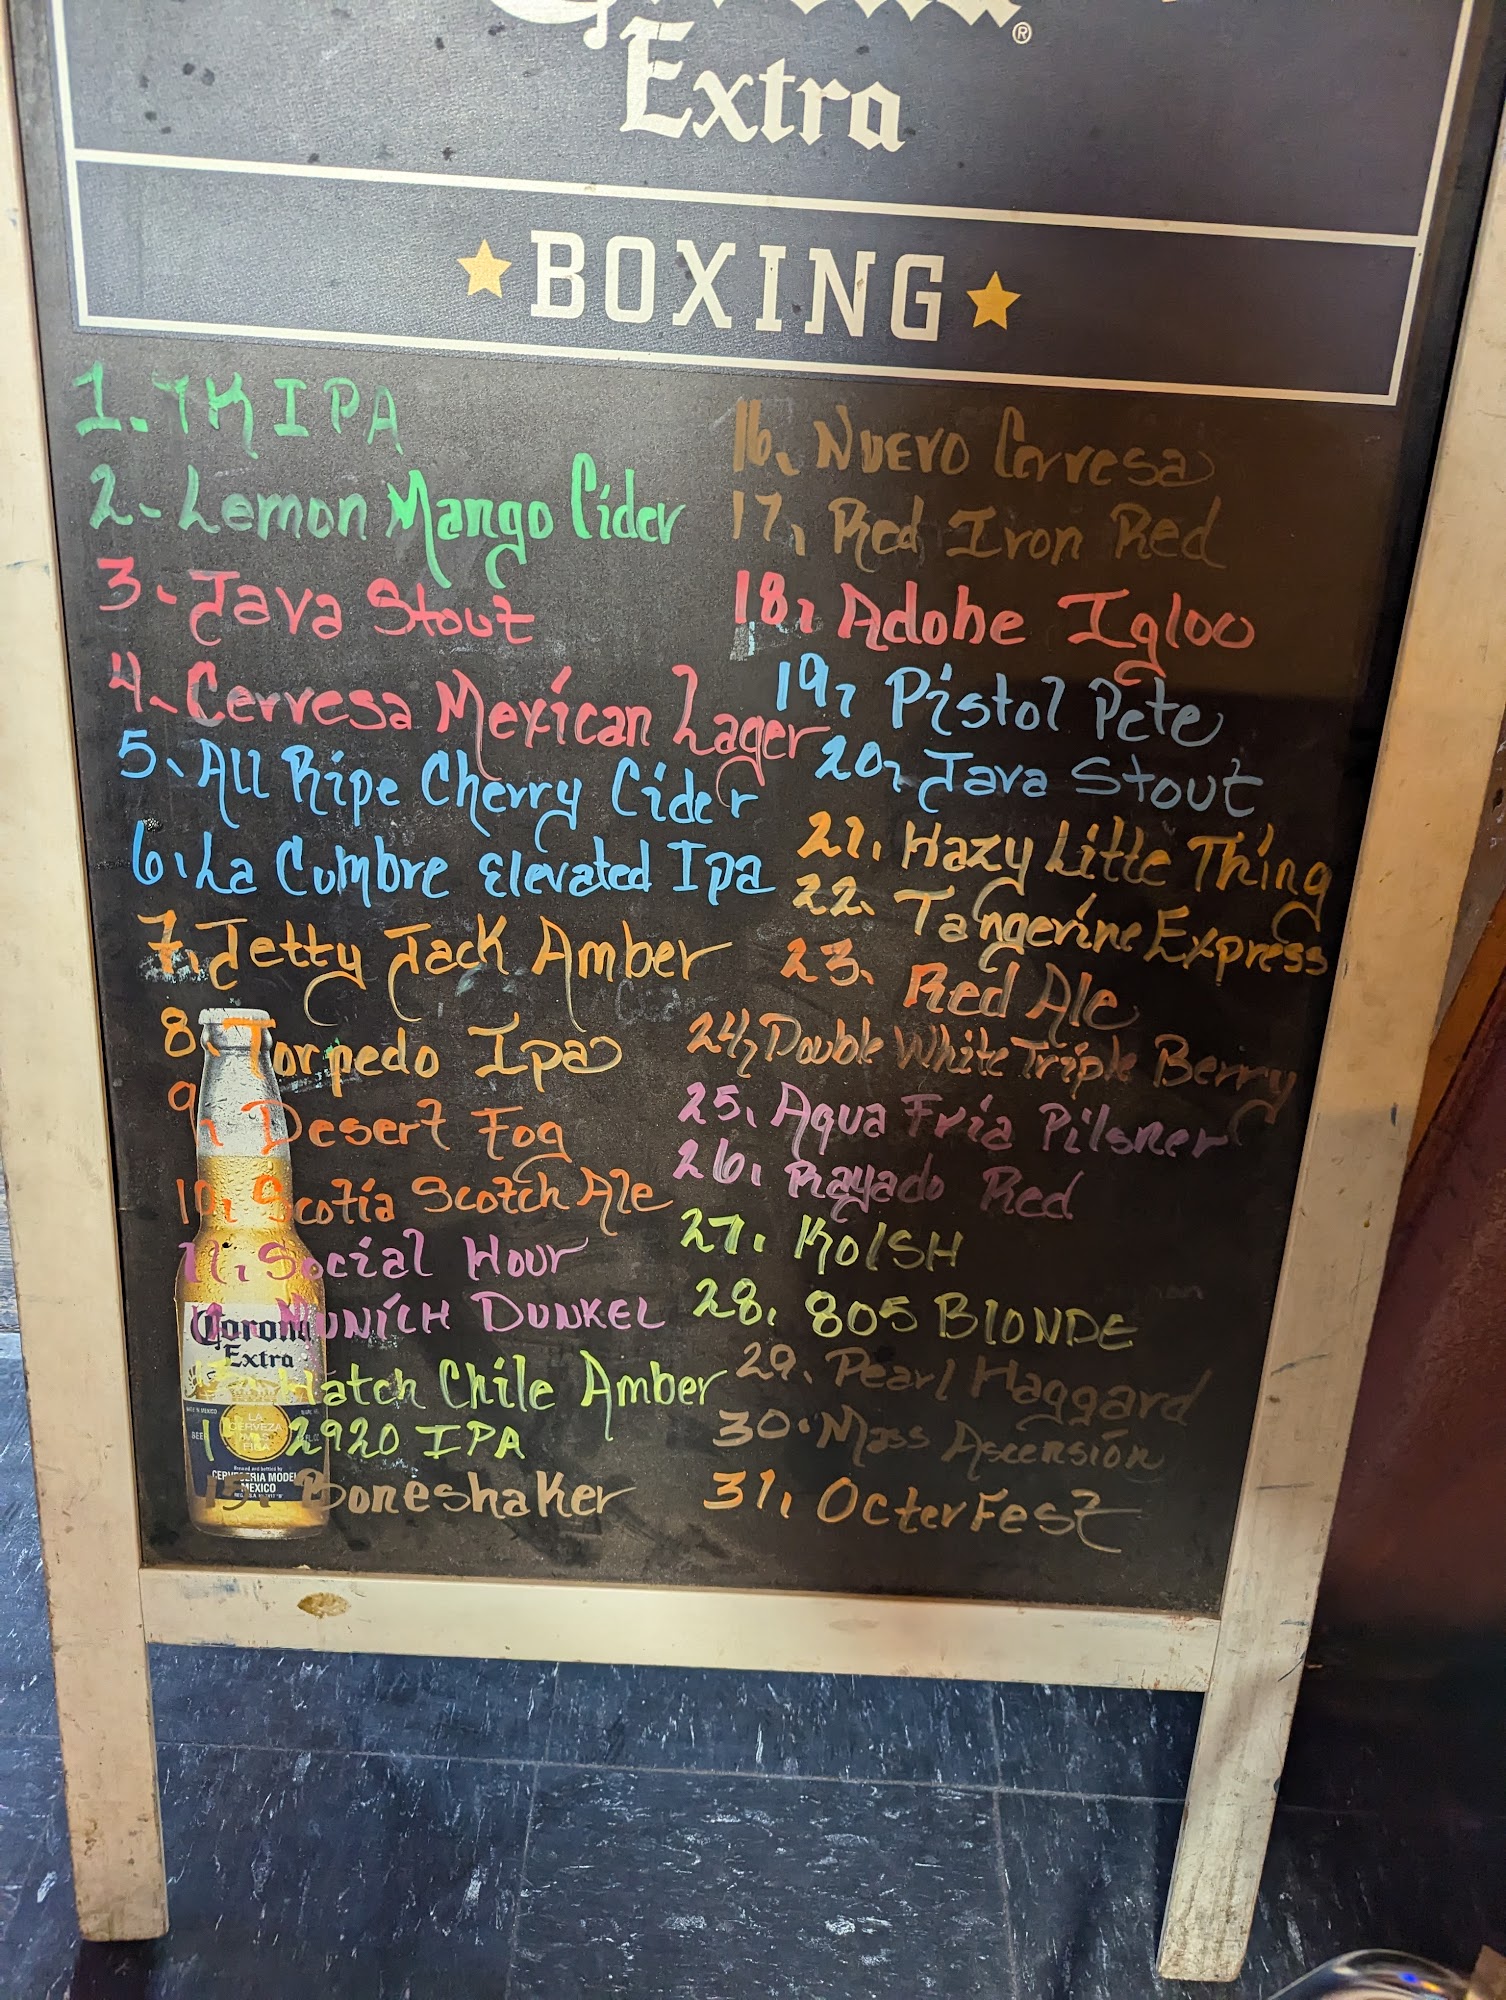 Extra
BOXING
1. 7K IPA
2. Lemon Mango Cider
3. Java Stout
4. Cervesa Mexican Lager
5. All Ripe Cherry Cider
6. La Cumbre Elevated Ipa
7. Jetty Jack Amber
8. Torpedo Ipa
9, Desert Fog
10, Scotia Scotch Ale
11, Social Hour
MUNICH DUNKEL
Hatch Chile Amber
2920 IPA
15. Boneshaker
16. NUEVO Cervesa
17, Red Iron Red
18, Adobe Igloo
19, Pistol Pete
20, Java Stout
21. Hazy Litte Thing
22. Tangerine Express
23. Red Ale
24, Double White Triple Berry
25. Aqua Fria Pilsner
26. Rayado Red
27. KOlSH
28. 805 BlONDE
29. Pearl Haggard
30. Mass Ascensión
31, OcterFest
Corona
Extra
LA
CERVEZA
MAS
FINA
Brewed and bottled by
CERVECERIA MODELO
MEXICO